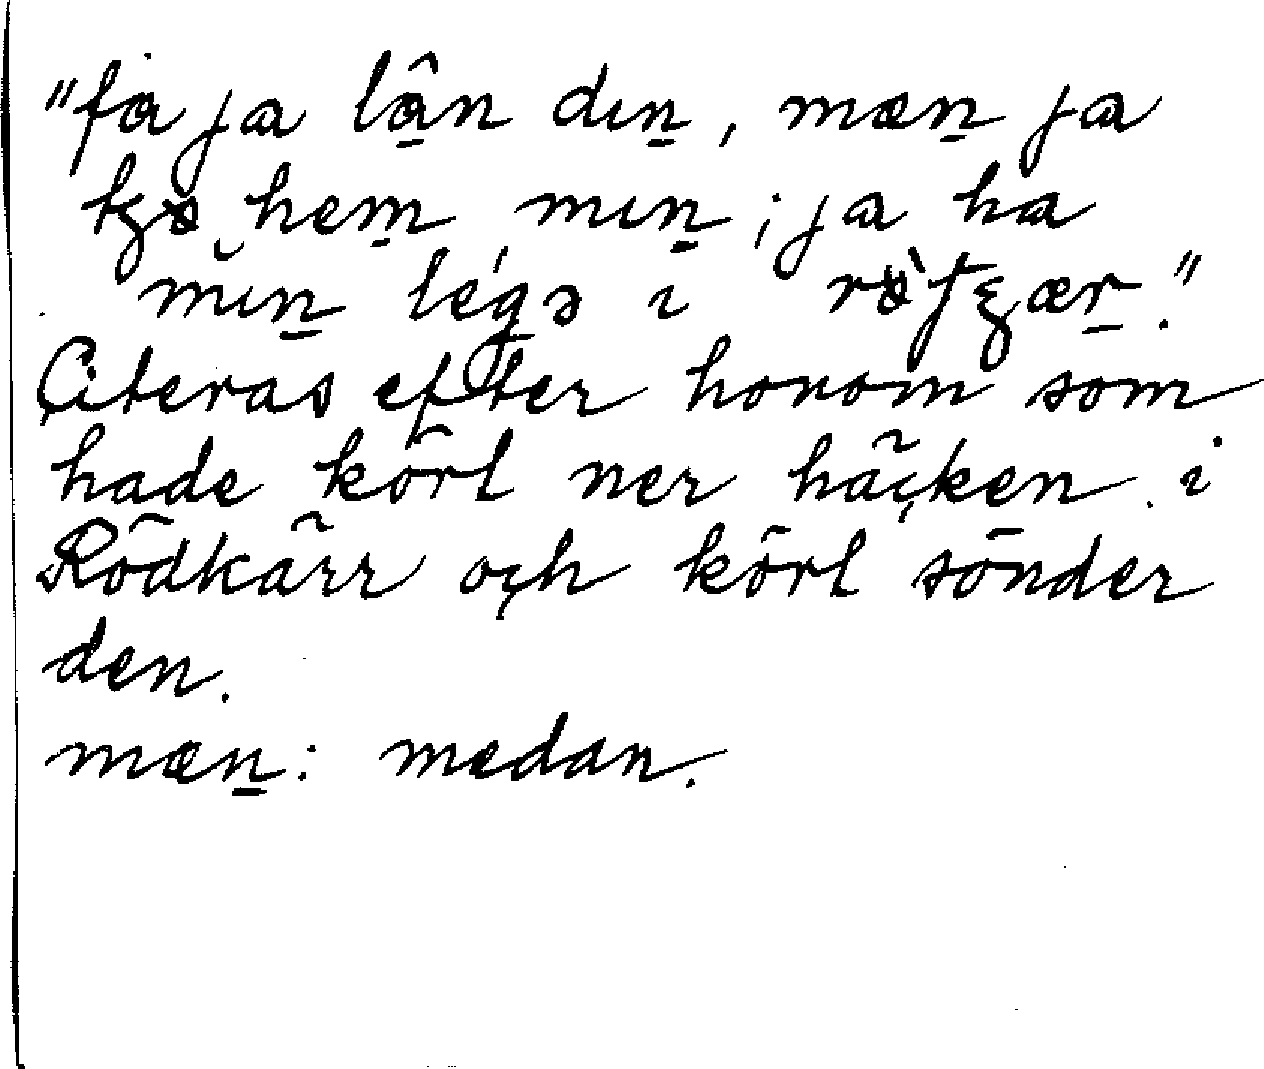 "få ja lân dın̲, mæn̲ ja
tʒø hem̲ mın̲; ja ha
mın̲ légə i røʃʒær̲."
Citeras efter honom som
hade körl ner häcken i
Rödkärr och körl sönder
den.
mæn̲: medan.